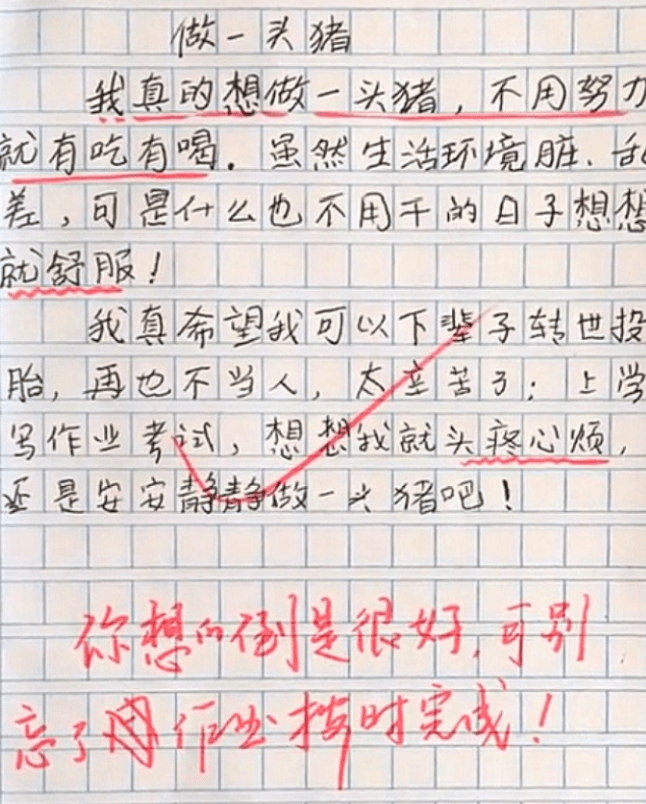 做一头猪
我真的想做一头猪，不用努力
就有吃有喝。虽然生活环境脏、乱
差，可是什么也不用干的日子想想
就舒服！
我真希望我可以下辈子转世投
胎，再也不当人，太辛苦了；上学
写作业考试，想想我就头疼心烦，
还是安安静静做一头猪吧！
你想的倒是很好，可别
忘了作业按时完成！